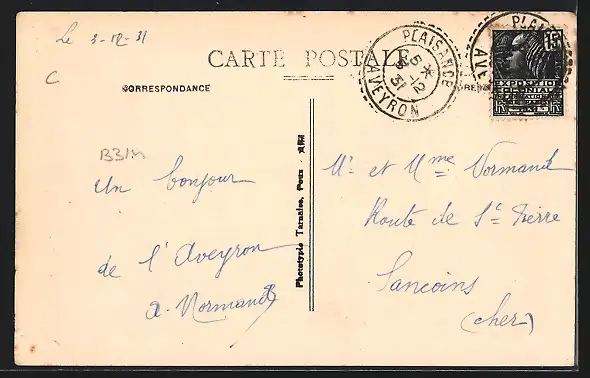 Le 3-12-31
CARTE POSTALE
CORRESPONDANCE
PLAISANCE
5 * 
-12
31
AVEYRON
PLAI
AVE
15c
EXPOSITION
COLONIALE
C
B31n
Un bonjour
de l'Aveyron
a. Normand
Phototypie Tarnaise, Poux - Albi
Mr et Mme Normand
Route de St Pierre
Sancoins
(Cher)